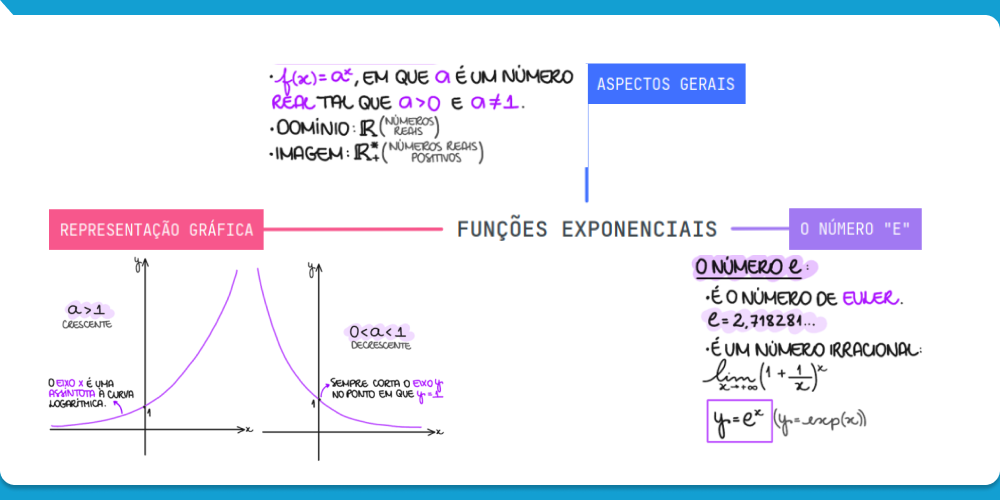 ·f(x)=aˣ, EM QUE a É UM NÚMERO
REAL TAL QUE a>0 E a≠1.
·DOMÍNIO: ℝ (NÚMEROS REAIS)
·IMAGEM: ℝ*₊ (NÚMEROS REAIS POSITIVOS)
ASPECTOS GERAIS
REPRESENTAÇÃO GRÁFICA
FUNÇÕES EXPONENCIAIS
O NÚMERO "E"
y
a>1
CRESCENTE
O EIXO X É UMA
ASSÍNTOTA À CURVA
LOGARÍTMICA.
1
x
y
0<a<1
DECRESCENTE
SEMPRE CORTA O EIXO y
NO PONTO EM QUE y=1
1
x
O NÚMERO e:
·É O NÚMERO DE EULER.
e=2,718281...
·É UM NÚMERO IRRACIONAL:
lim x→+∞ (1+1/x)ˣ
y=eˣ (y=exp(x))